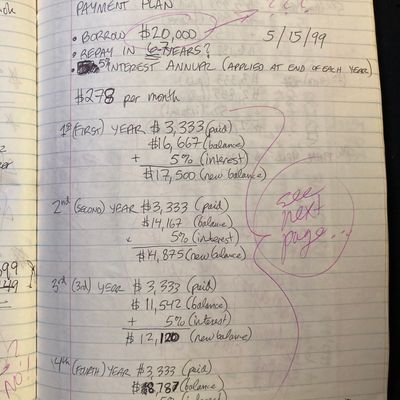 PAYMENT PLAN
• BORROW $20,000
5/15/99
• REPAY IN 6-7 YEARS?
• 5% INTEREST ANNUAL (APPLIED AT END OF EACH YEAR)
$278 per month
1st (FIRST) YEAR $3,333 (paid)
$16,667 (balance)
+ 5% (interest)
$17,500 (new balance)
2nd (SECOND) YEAR $3,333 (paid)
$14,167 (balance)
5% (interest)
$14,875 (new balance)
see
next
page...
3rd (3rd) YEAR $3,333 (paid)
$11,542 (balance)
+ 5% (interest)
$12,120 (new balance)
4th (FOURTH) YEAR $3,333 (paid)
$8,787 (balance)
5% (interest)